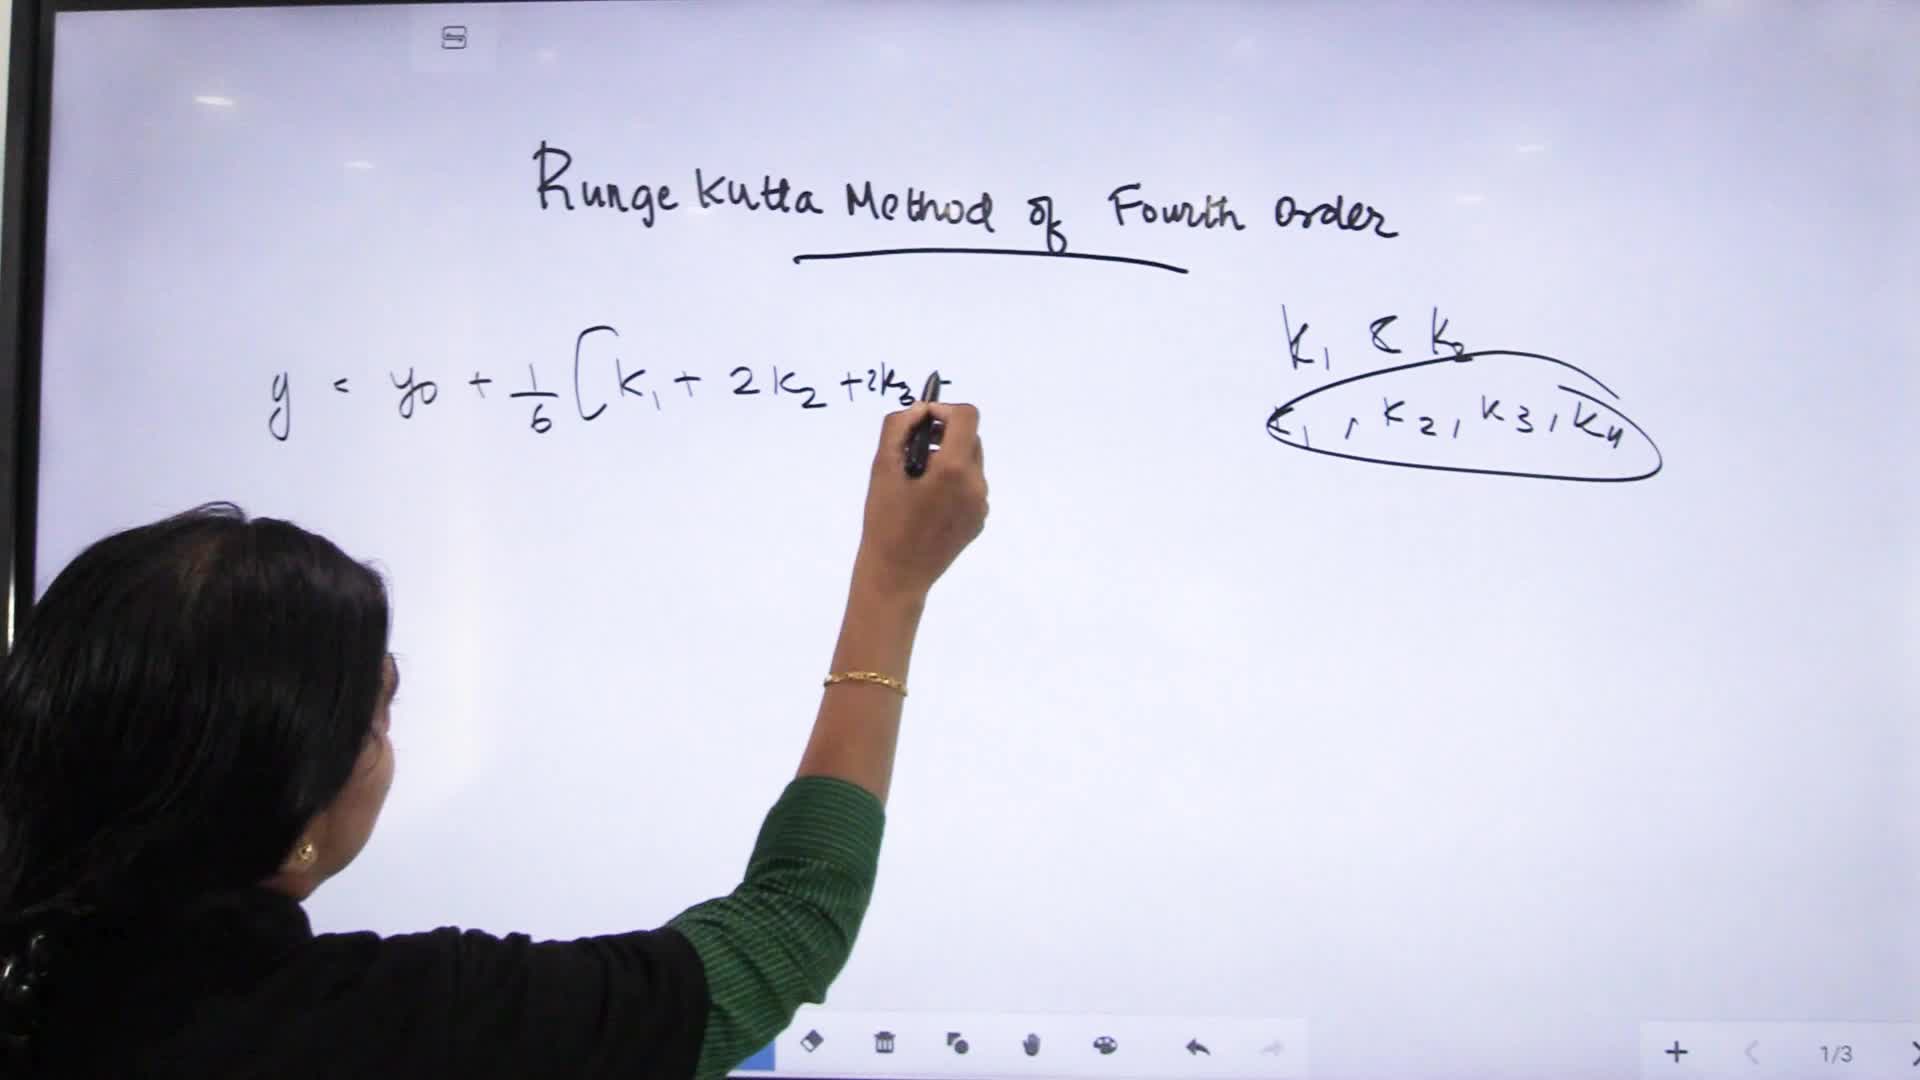 Runge Kutta Method of Fourth order
K₁ & K₂
y = y₀ + 1/6 [K₁ + 2K₂ + 2K₃ +
K₁, K₂, K₃, K₄
1/3